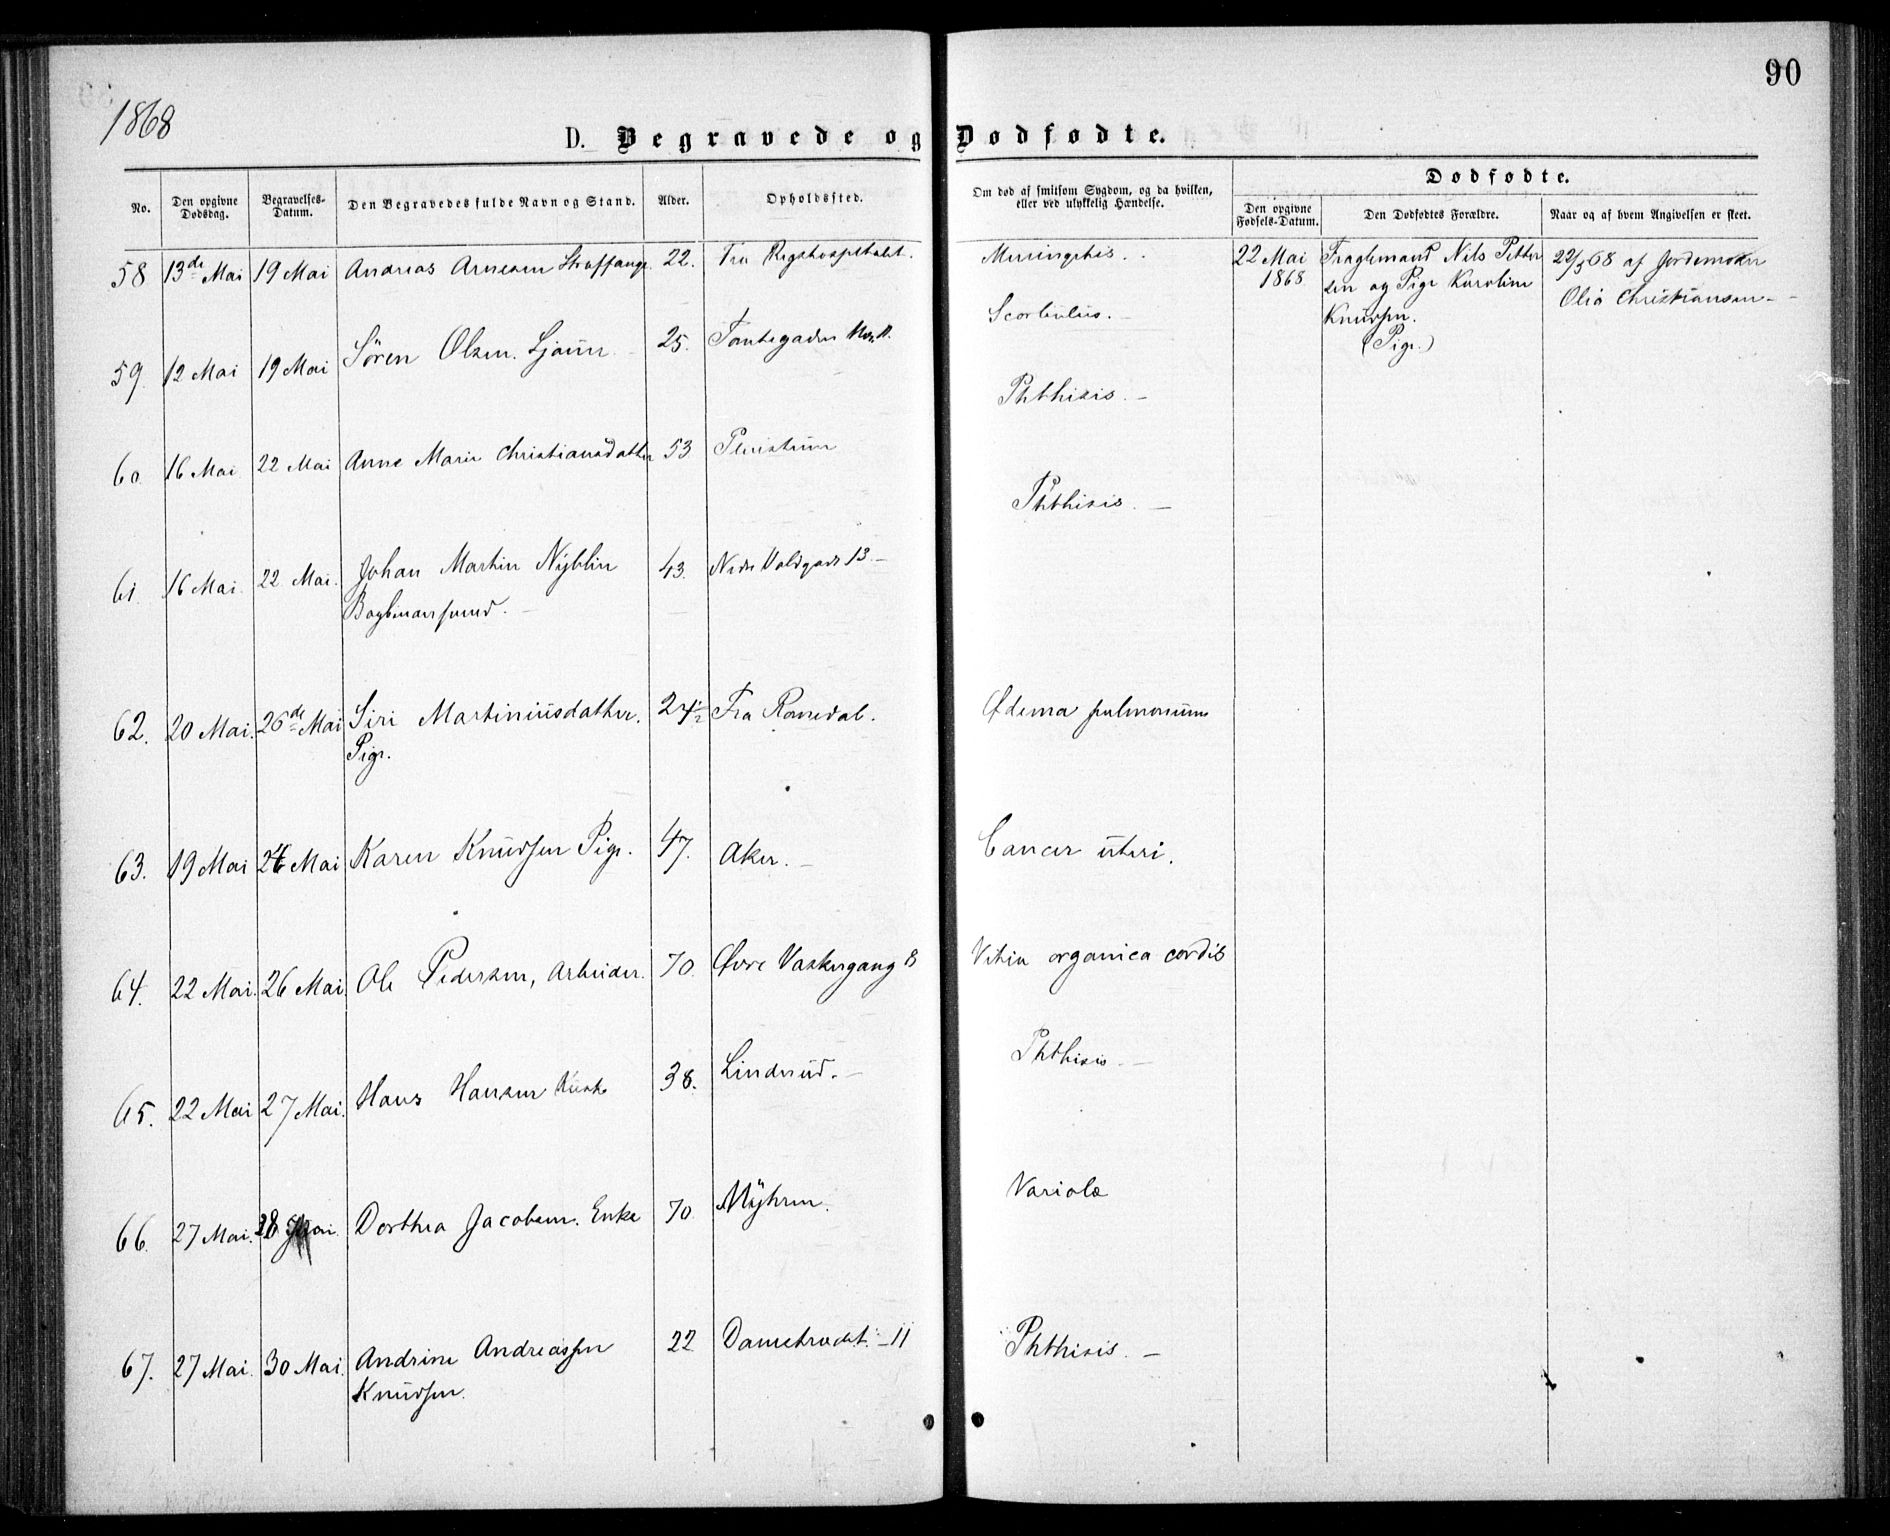 1868
90
D. Begravede og Dødfødte.
No.
Den opgivne Dødsdag.
Begravelses-Datum.
Den Begravedes fulde Navn og Stand.
Alder.
Opholdssted.
Om død af smitsom Sygdom, og da hvilken, eller ved ulykkelig Hændelse.
Dødfødte.
Den opgivne Fødsels-Datum.
Den Dødfødtes Forældre.
Naar og af hvem Angivelsen er skeet.
58 13de Mai 19 Mai Andreas Arnesen Straffange 22. Fra Rigshospitalet. Meningitis.
22 Mai 1868 Nils Petter
sen og Pige Karoline
Knudsen.
(Pige.)
22/5 68 af Jordemoder
Olia Christiansen -
59. 12 Mai 19 Mai Sören Olsen. 25. Scorbutus. -
Phthisis. -
60 16 Mai 22 Mai Anne Marie Christiansdatter 53
Phthisis. -
61. 16 Mai. 22 Mai. Johan Martin Nyblin 43. Nedre Voldgade 13. -
62. 20 Mai. 26de Mai Siri Martiniusdatter. 24 1/2 Fra Romedal. Ødema pulmonum
Pige.
63. 19 Mai 26 Mai Karen Knudsen Pige. 47. Aker. - Cancer uteri.
64. 22 Mai. 26 Mai. Ole Pedersen, Arbeider. 70. Øvre Vaskergang 8 Vitia organica cordis
65. 22 Mai 27 Mai. Hans Hansen 38. Linderud. - Phthisis -
66. 27 Mai. 28 Mai. Dorthea Jacobsen. Enke 70. Myhren. Variolæ
67. 27 Mai 30 Mai. Andrine Andreassen 22 Damstrædet - 11 Phthisis. -
Knudsen.